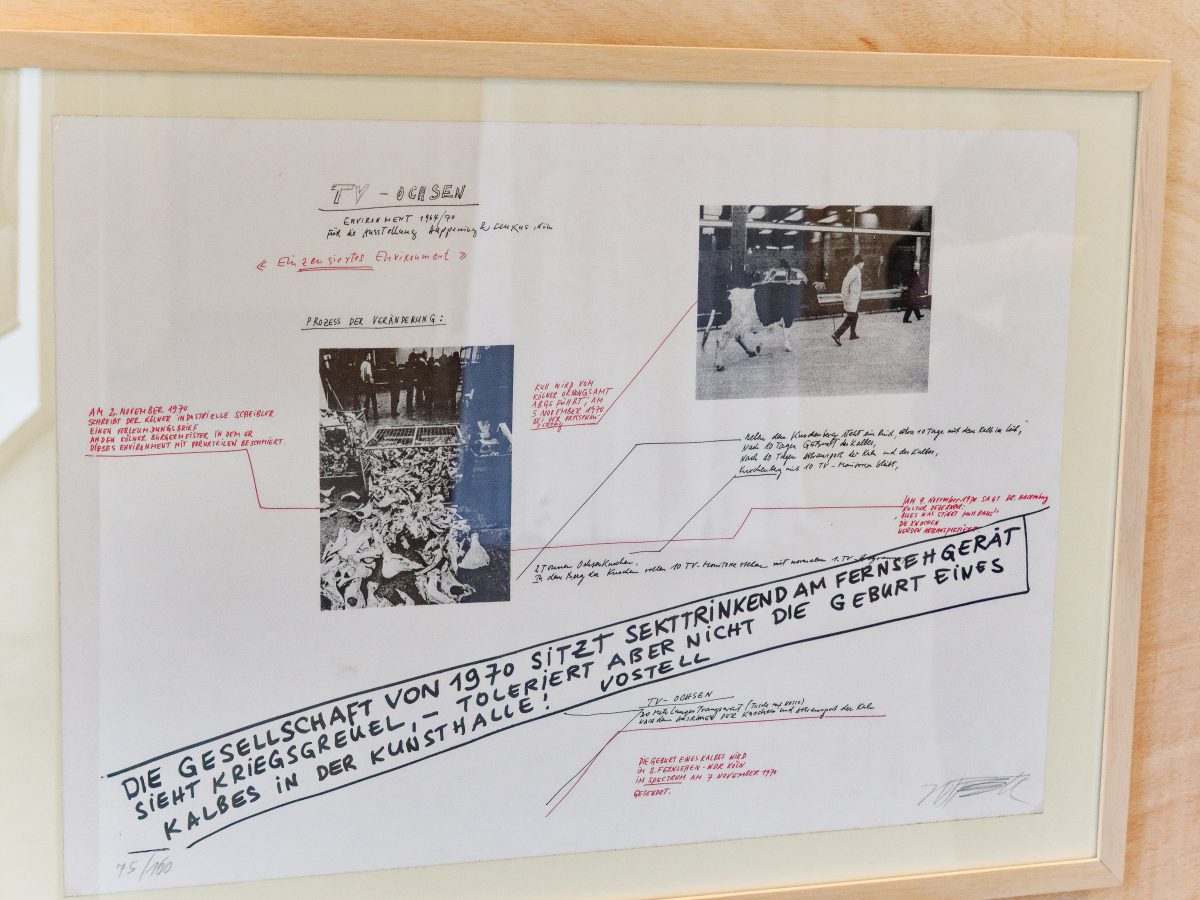 TV - OCHSEN
ENVIRONMENT 1964/70
für die Ausstellung Happening & Fluxus, Köln
« Ein zensiertes Environment »
PROZESS DER VERÄNDERUNG:
KUH WIRD VOM
KÖLNER ORDNUNGSAMT
ABGEFÜHRT, AM
5 NOVEMBER 1970
BEI DER
AM 2. NOVEMBER 1970
SCHREIBT DER KÖLNER INDUSTRIELLE SCHEIBLER
EINEN VERLEUMDUNGSBRIEF
AN DEN KÖLNER BÜRGERMEISTER IN DEM ER
DIESES ENVIRONMENT MIT VORURTEILEN BESCHMIERT.
neben dem Knochenberg steht ein Rind, etwa 10 Tage mit dem Kalb im Leib,
Nach 10 Tagen Geburt des Kalbes,
Nach 10 Tagen Abtransport der Kuh und des Kalbes,
Knochenberg mit 10 TV-Monitoren bleibt,
AM 9. NOVEMBER 1970 SAGT DR. HACKENBERG
KULTUR DEZERNENT:
"ALLES WAS STINKT MUSS RAUS!"
DIE KNOCHEN
WERDEN ABTRANSPORTIERT
2 Tonnen Ochsenknochen,
In dem Berg der Knochen sollen 10 TV-Monitore stehen mit normalem 1. TV-Programm
DIE GESELLSCHAFT VON 1970 SITZT SEKTTRINKEND AM FERNSEHGERÄT
SIEHT KRIEGSGREUEL, - TOLERIERT ABER NICHT DIE GEBURT EINES
KALBES IN DER KUNSTHALLE! VOSTELL
TV - OCHSEN
Meter langes Transparent (Tusche auf
nach dem Abräumen der Knochen und Abtransport der Kuh
DIE GEBURT EINES KALBES WIRD
IM 3. FERNSEHEN - WDR KÖLN
IM SPECTRUM AM 7 NOVEMBER 1970
GESENDET.
75/100